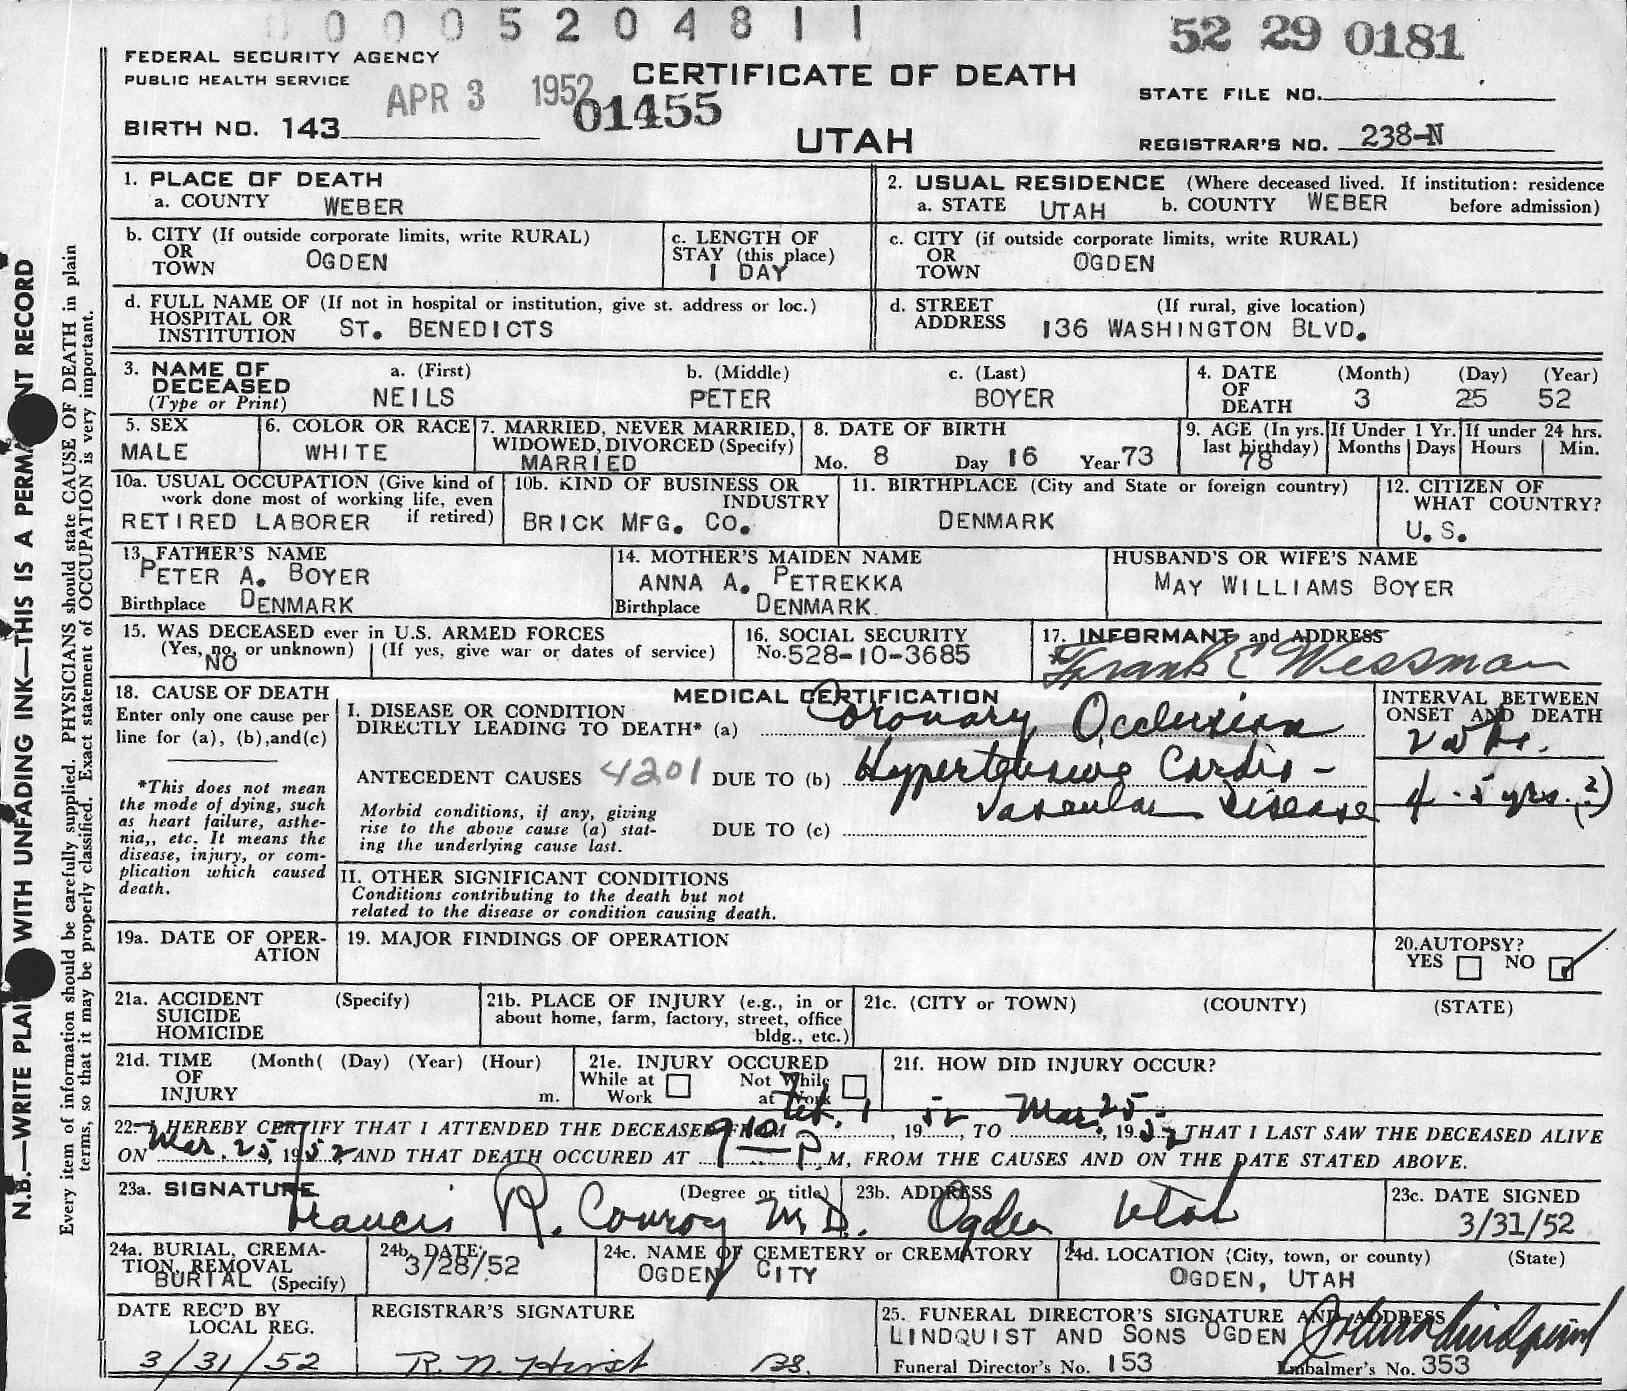 0 0 0 5 2 0 4 8 1 1
52 29 0181
FEDERAL SECURITY AGENCY
PUBLIC HEALTH SERVICE
APR 3 1952
01455
CERTIFICATE OF DEATH
UTAH
STATE FILE NO.
BIRTH NO. 143
REGISTRAR'S NO. 238-N
N.B.—WRITE PLAI WITH UNFADING INK—THIS IS A PERMA NT RECORD
Every item of information should be carefully supplied. PHYSICIANS should state CAUSE OF DEATH in plain
terms, so that it may be properly classified. Exact statement of OCCUPATION is very important.
1. PLACE OF DEATH
a. COUNTY WEBER
2. USUAL RESIDENCE (Where deceased lived. If institution: residence
a. STATE UTAH b. COUNTY WEBER before admission)
b. CITY (If outside corporate limits, write RURAL)
OR
TOWN OGDEN
c. LENGTH OF
STAY (this place)
1 DAY
c. CITY (if outside corporate limits, write RURAL)
OR
TOWN OGDEN
d. FULL NAME OF (If not in hospital or institution, give st. address or loc.)
HOSPITAL OR
INSTITUTION ST. BENEDICTS
d. STREET (If rural, give location)
ADDRESS 136 WASHINGTON BLVD.
3. NAME OF
DECEASED
(Type or Print)
a. (First) b. (Middle) c. (Last)
NEILS PETER BOYER
4. DATE (Month) (Day) (Year)
OF
DEATH 3 25 52
5. SEX
MALE
6. COLOR OR RACE
WHITE
7. MARRIED, NEVER MARRIED,
WIDOWED, DIVORCED (Specify)
MARRIED
8. DATE OF BIRTH
Mo. 8 Day 16 Year 73
9. AGE (In yrs.
last birthday)
78
If Under 1 Yr.
Months Days
If under 24 hrs.
Hours Min.
10a. USUAL OCCUPATION (Give kind of
work done most of working life, even
RETIRED LABORER if retired)
10b. KIND OF BUSINESS OR
INDUSTRY
BRICK MFG. CO.
11. BIRTHPLACE (City and State or foreign country)
DENMARK
12. CITIZEN OF
WHAT COUNTRY?
U.S.
13. FATHER'S NAME
PETER A. BOYER
Birthplace DENMARK
14. MOTHER'S MAIDEN NAME
ANNA A. PETREKKA
Birthplace DENMARK
HUSBAND'S OR WIFE'S NAME
MAY WILLIAMS BOYER
15. WAS DECEASED ever in U.S. ARMED FORCES
(Yes, no, or unknown) (If yes, give war or dates of service)
NO
16. SOCIAL SECURITY
No. 528-10-3685
17. INFORMANT and ADDRESS
Frank E Wessman
18. CAUSE OF DEATH
Enter only one cause per
line for (a), (b),and(c)
*This does not mean
the mode of dying, such
as heart failure, asthe-
nia,, etc. It means the
disease, injury, or com-
plication which caused
death.
MEDICAL CERTIFICATION
I. DISEASE OR CONDITION
DIRECTLY LEADING TO DEATH* (a) Coronary Occlusion
ANTECEDENT CAUSES 4201 DUE TO (b) Hypertensive Cardio-
vascular Disease
Morbid conditions, if any, giving
rise to the above cause (a) stat-
ing the underlying cause last.
DUE TO (c)
INTERVAL BETWEEN
ONSET AND DEATH
4-5 yrs. (?)
II. OTHER SIGNIFICANT CONDITIONS
Conditions contributing to the death but not
related to the disease or condition causing death.
19a. DATE OF OPER-
ATION
19. MAJOR FINDINGS OF OPERATION
20. AUTOPSY?
YES NO ✓
21a. ACCIDENT (Specify)
SUICIDE
HOMICIDE
21b. PLACE OF INJURY (e.g., in or
about home, farm, factory, street, office
bldg., etc.)
21c. (CITY or TOWN) (COUNTY) (STATE)
21d. TIME (Month( (Day) (Year) (Hour)
OF
INJURY m.
21e. INJURY OCCURED
While at Not While
Work at Work
21f. HOW DID INJURY OCCUR?
22. I HEREBY CERTIFY THAT I ATTENDED THE DECEASED FROM Feb. 1, 1952, TO Mar. 25, 1952 THAT I LAST SAW THE DECEASED ALIVE
ON Mar. 25, 1952, AND THAT DEATH OCCURED AT 910 P.M, FROM THE CAUSES AND ON THE DATE STATED ABOVE.
23a. SIGNATURE (Degree or title)
Francis R. Conroy M.D.
23b. ADDRESS
Ogden Utah
23c. DATE SIGNED
3/31/52
24a. BURIAL, CREMA-
TION, REMOVAL
BURIAL (Specify)
24b. DATE
3/28/52
24c. NAME OF CEMETERY or CREMATORY
OGDEN CITY
24d. LOCATION (City, town, or county) (State)
OGDEN, UTAH
DATE REC'D BY
LOCAL REG.
3/31/52
REGISTRAR'S SIGNATURE
R. N. Hirst Bs.
25. FUNERAL DIRECTOR'S SIGNATURE AND ADDRESS
LINDQUIST AND SONS OGDEN
Funeral Director's No. 153 Embalmer's No. 353